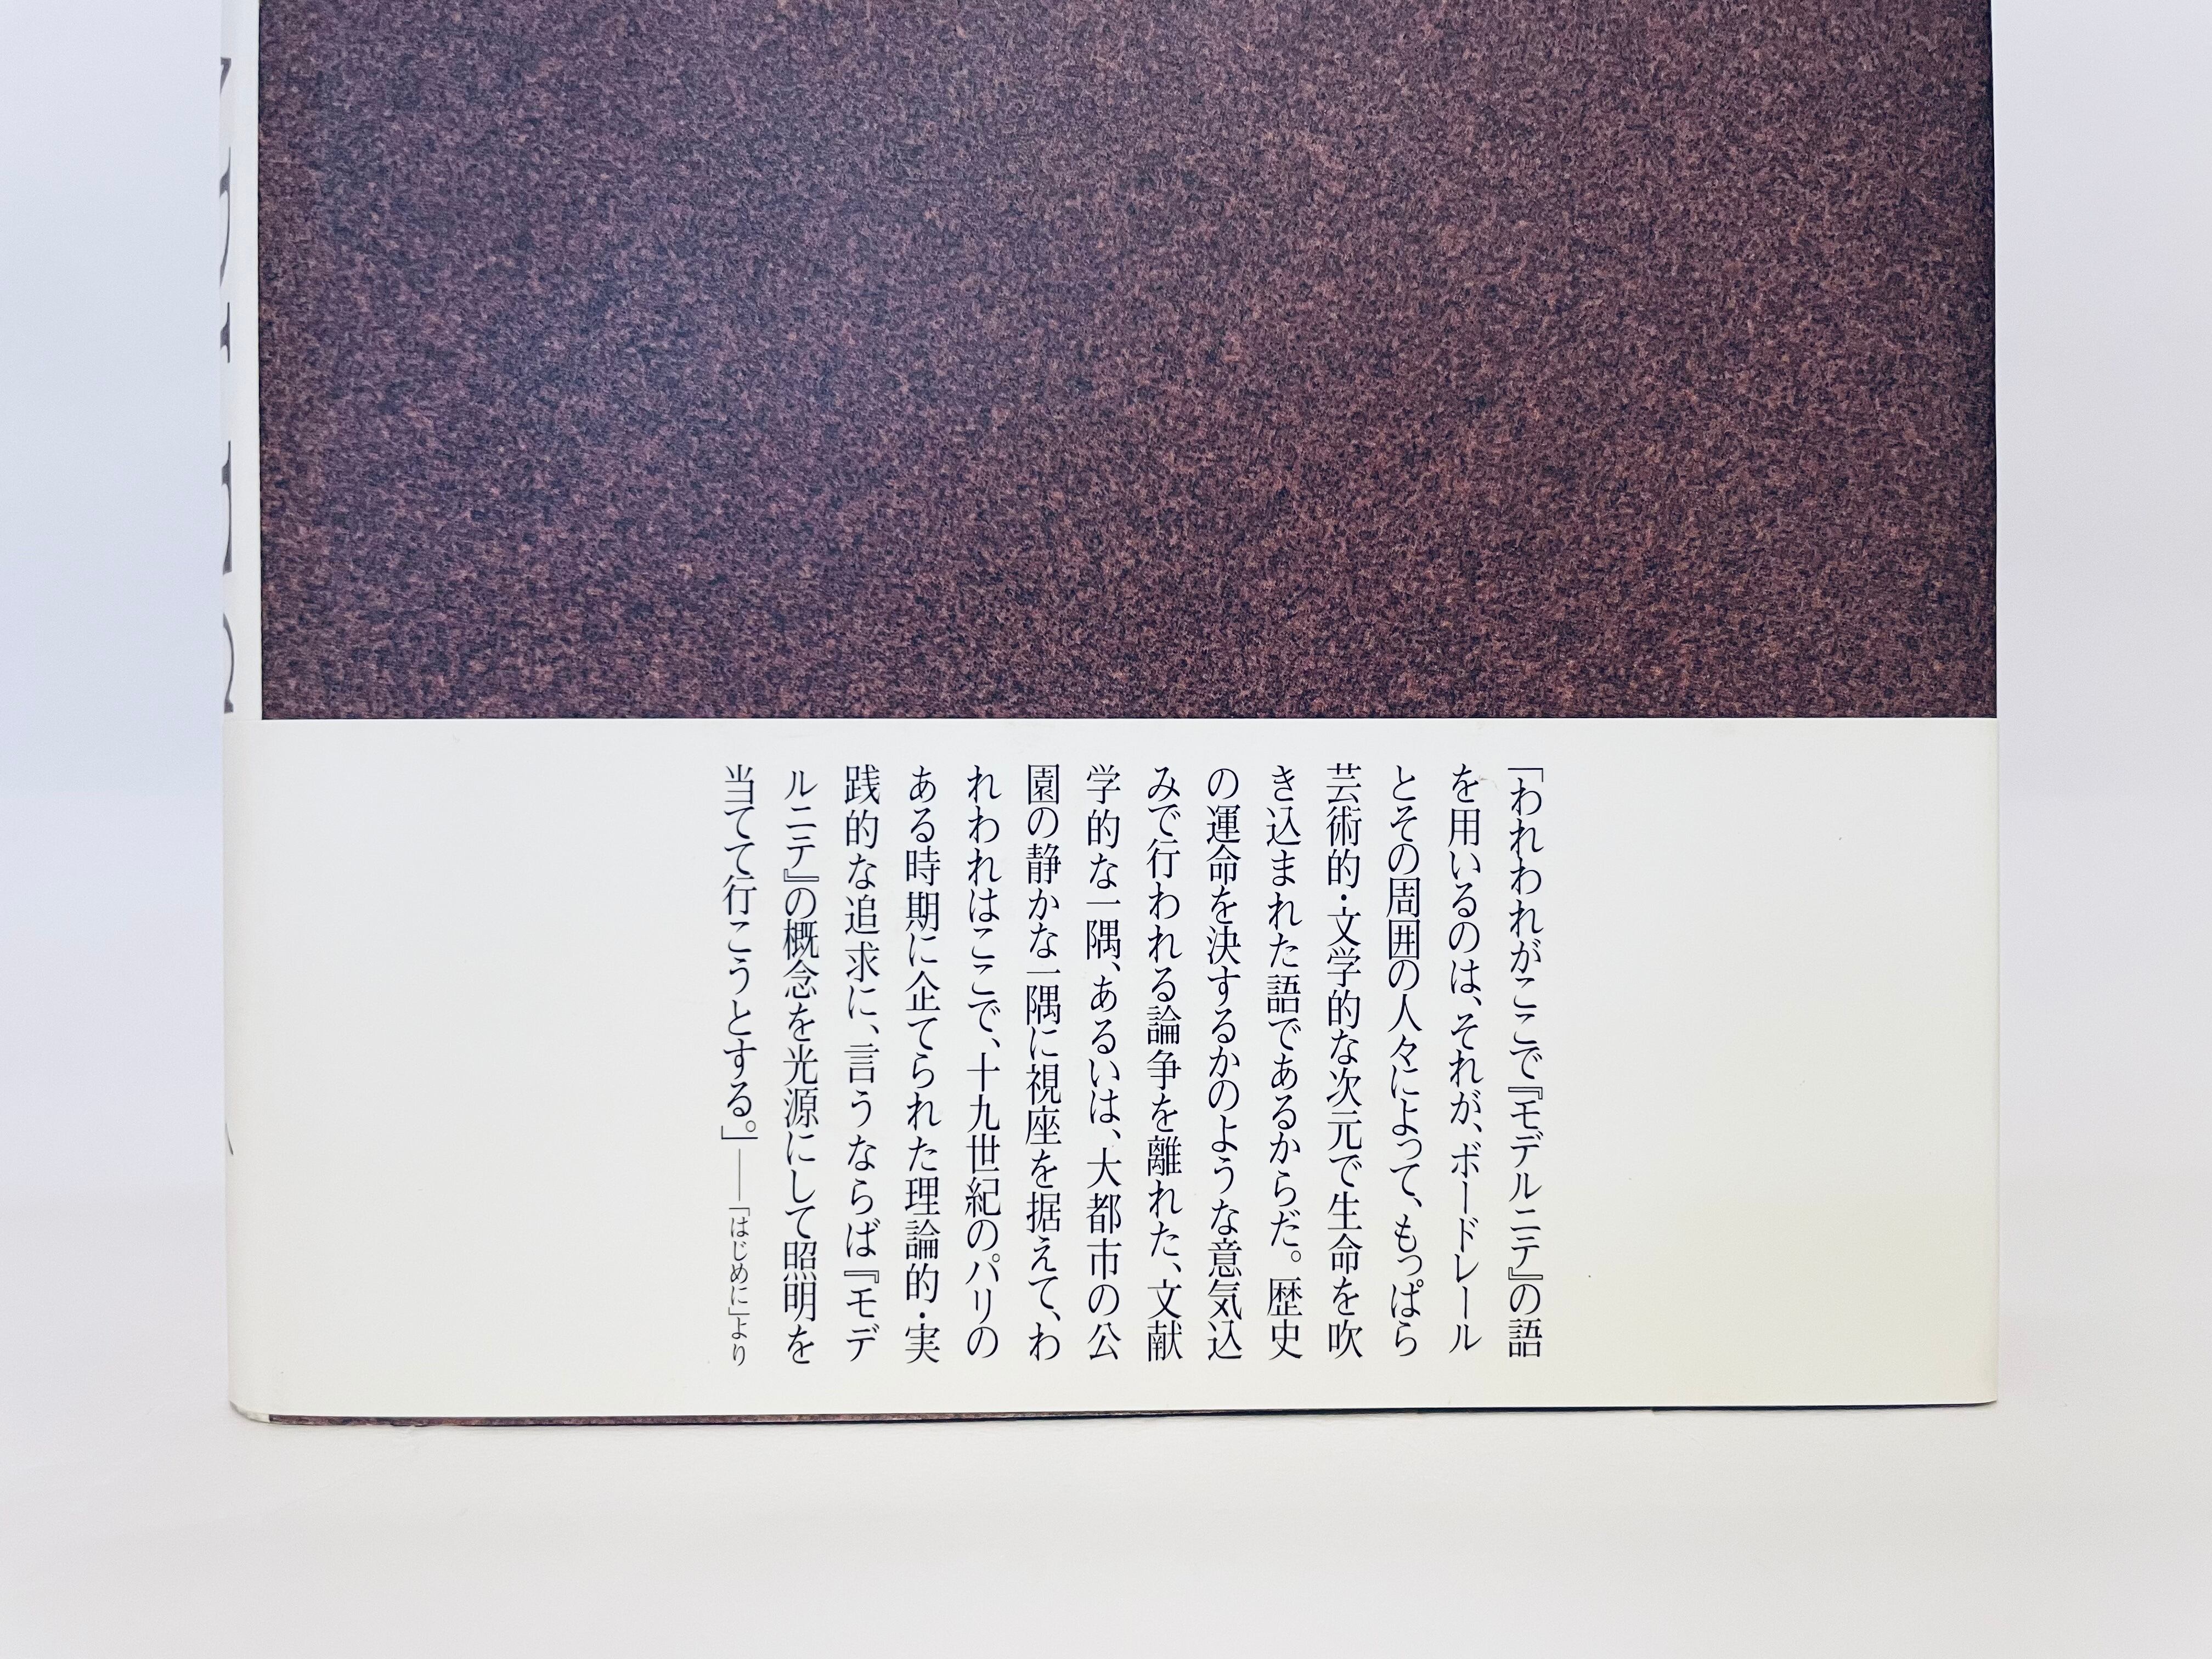 「われわれがここで『モデルニテ』の語
を用いるのは、それが、ボードレール
とその周囲の人々によって、もっぱら
芸術的・文学的な次元で生命を吹
き込まれた語であるからだ。歴史
の運命を決するかのような意気込
みで行われる論争を離れた、文献
学的な一隅、あるいは、大都市の公
園の静かな一隅に視座を据えて、わ
れわれはここで、十九世紀のパリの
ある時期に企てられた理論的・実
践的な追求に、言うならば『モデ
ルニテ』の概念を光源にして照明を
当てて行こうとする。」——「はじめに」より